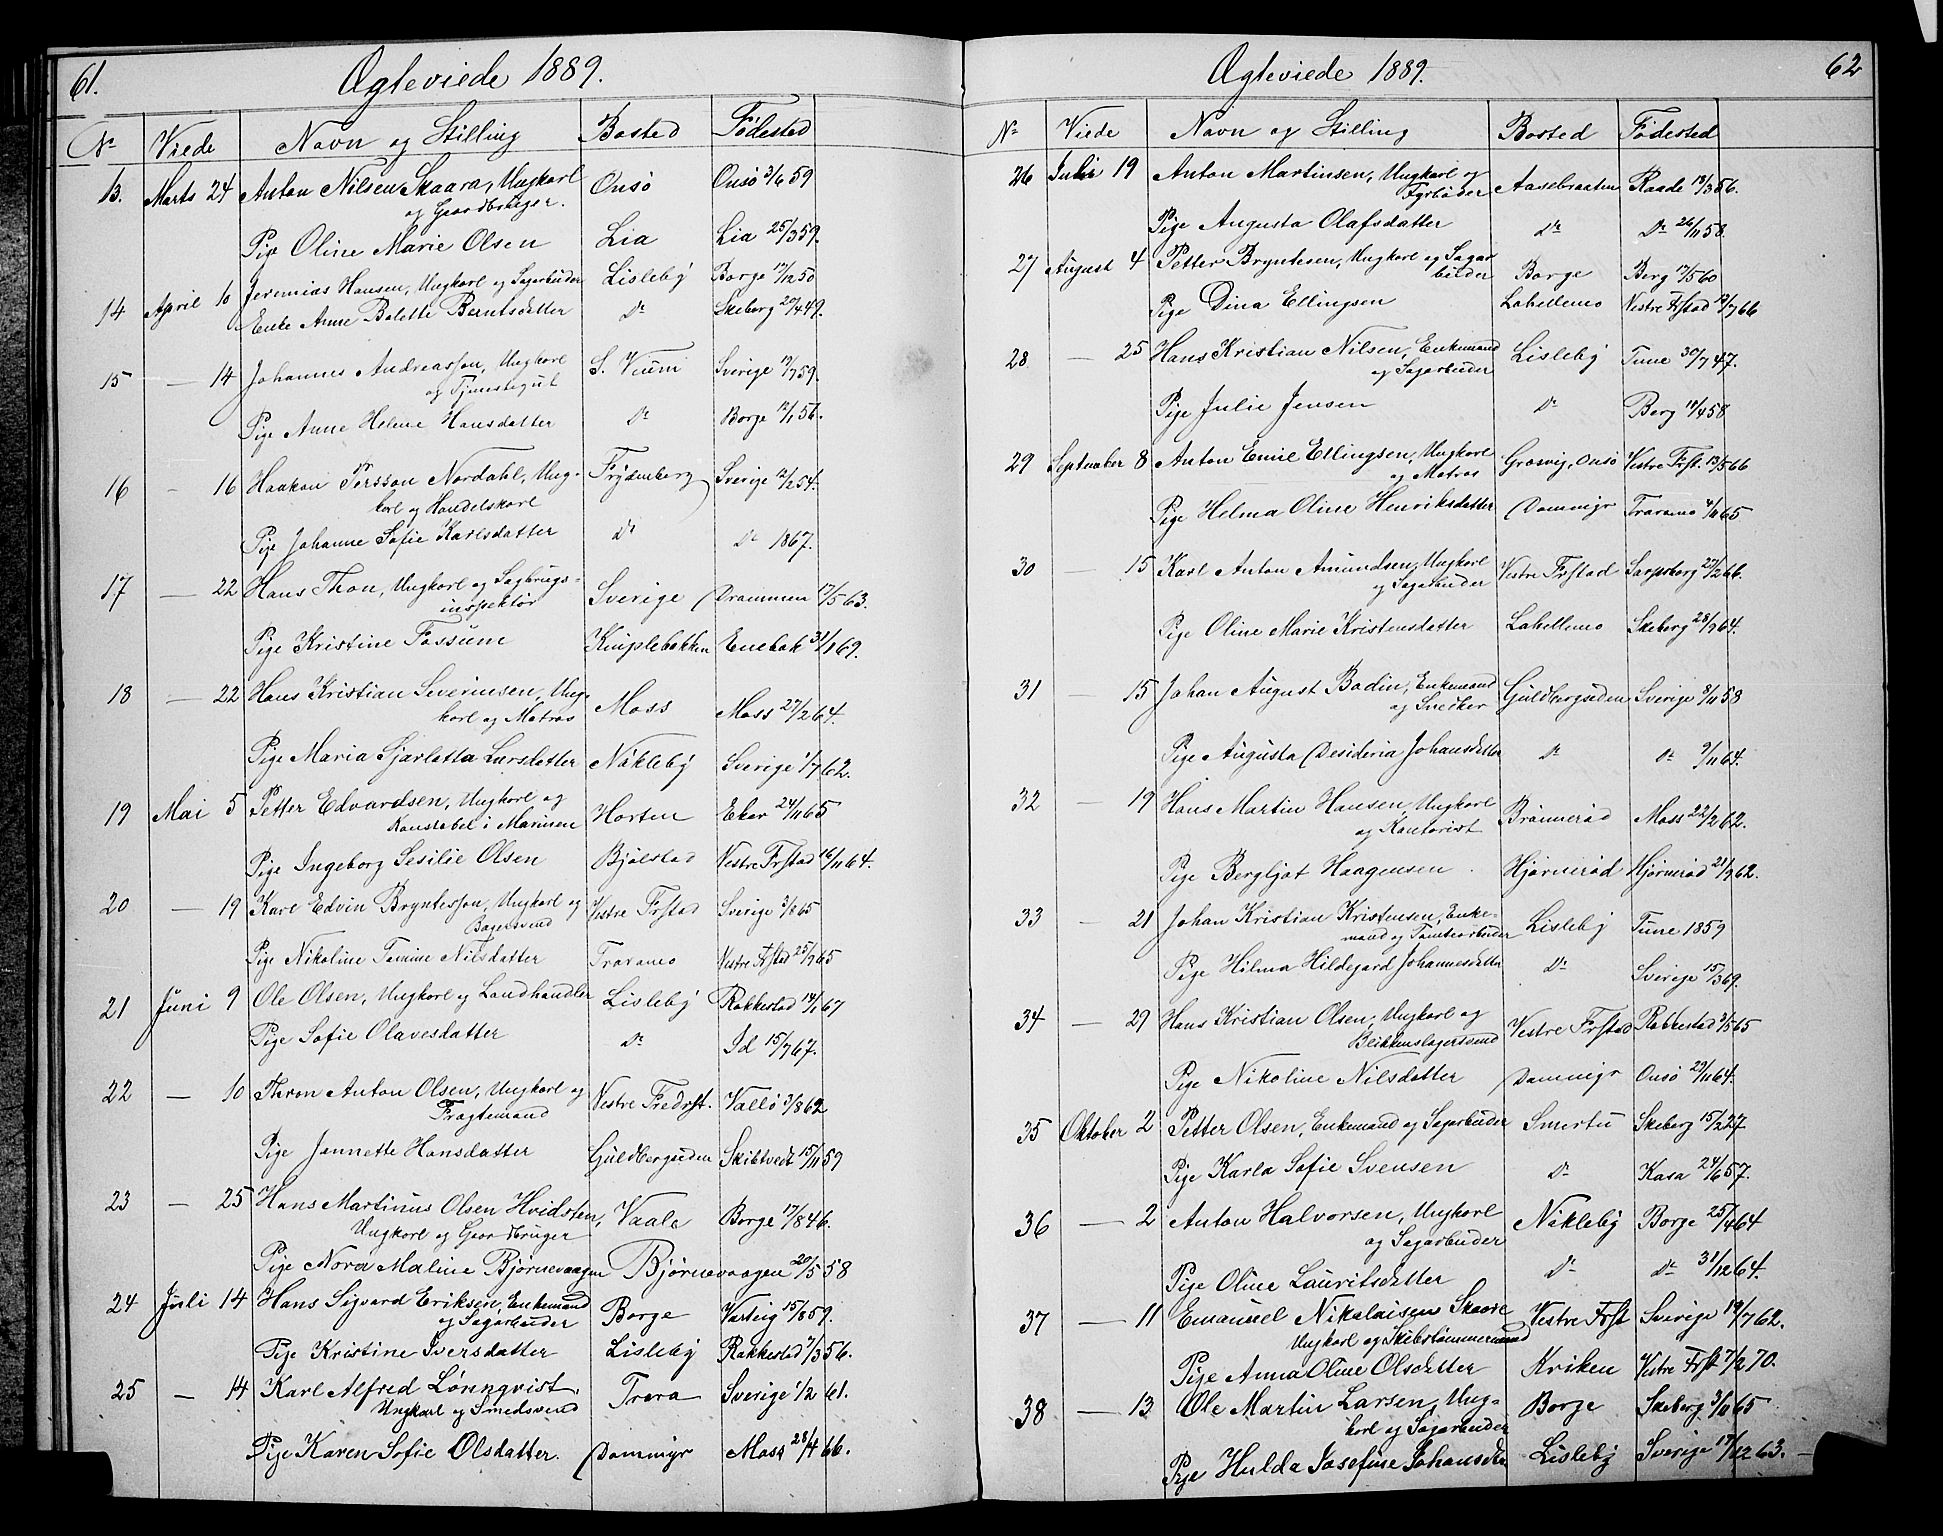 61.
Ægteviede 1889.
Nr Viede Navn og Stilling Bosted Fødested
13. Marts 24 Anton Nilsen Skaara, Ungkarl Onsø Onsø 3/6 59
og Gaardbruger.
Pige Oline Marie Olsen Lia Lia 25/3 59.
14 April 10 Jeremias Hansen, Ungkarl og Sagarbeider Lisleby Borge 12/12 50
Enke Anne Bolette Berntsdatter Do Skeberg 20/4 49.
15 — 14 Johannes Andreassen, Ungkarl S. Veum Sverige 19/7 59.
og Tjenestegut
Pige Anne Helene Hansdatter Do Borge 12/1 56.
16 — 16 Haakan Persson Nordahl, Ung- Frydenberg Sverige 2/2 54.
karl og Handelskarl
Pige Johanne Sofie Karlsdatter Do Do 1867.
17 — 22 Hans Thon, Ungkarl og Sagbrugs- Sverige Drammen 17/5 63.
inspektør
Pige Kristine Fossum Kniplebakken Enebak 31/1 69.
18 — 22 Hans Kristian Severinsen, Ung- Moss Moss 27/2 64.
karl og Matros
Pige Maria Sjarlotta Larsdatter Nøkleby Sverige 1/7 62.
19 Mai 5 Petter Edvardsen, Ungkarl og Horten Eker 24/11 65
Konstabel i Marinen
Pige Ingeborg Sesilie Olsen Bjølstad Vestre Frstad 16/11 64.
20 — 19 Karl Edvin Bryntesson, Ungkarl og Vestre Frstad Sverige 5/8 65
Bagersvend
Pige Nikoline Tomine Nilsdatter Traramo Vestre Frstad 25/9 65
21 Juni 9 Ole Olsen, Ungkarl og Landhandler Lisleby Rakkestad 14/1 67
Pige Sofie Olavesdatter Do Id 15/7 67.
22 — 10 Thron Anton Olsen, Ungkarl og Vestre Fredrst. Vallø 3/8 62
Fragtemand
Pige Jannette Hansdatter Guldbergsiden Skibtvedt 15/11 59
23 — 25 Hans Martinus Olsen Hvidsten, Vaale Borge 17/8 46.
Ungkarl og Gaardbruger
Pige Nora Maline Bjørnevaagen Bjørnevaagen 20/5 58
24 Juli 14 Hans Sigvard Eriksen, Enkemand Borge Varteig 15/8 59.
og Sagarbeider
Pige Kristine Iversdatter Lisleby Rakkestad 7/3 56.
25 — 14 Karl Alfred Lønnqvist, Trara Sverige 1/2 61.
Ungkarl og Smedsvend
Pige Karen Sofie Olsdatter. Dammyr Moss 28/4 66.
62
Ægteviede 1889.
Nr Viede Navn og Stilling Bosted Fødested
26 Juli 19 Anton Martinsen, Ungkarl og Aasebraaten Raade 18/3 56.
Fyrbøder
Pige Augusta Olafsdatter Do Do 26/11 58.
27 August 4 Petter Bryntesen, Ungkarl og Sagar- Borge Berg 17/5 60
beider
Pige Dina Ellingsen Labellemo Vestre Frstad 12/7 66
28 — 25 Hans Kristian Nilsen, Enkemand Lisleby Tune 30/7 47.
og Sagarbeider
Pige Julie Jensen Do Berg 18/4 58
29 September 8 Anton Emil Ellingsen, Ungkarl Gresvig, Onsø Vestre Frst. 13/5 66
og Matros
Pige Helma Oline Henriksdatter Dammyr Traramo 4/11 65
30 — 15 Karl Anton Amundsen, Ungkarl Vestre Frstad Sarpsborg 27/2 66.
og Sagarbeider
Pige Oline Marie Kristensdatter Labellemo Skeberg 28/9 64.
31 — 15 Johan August Bodin, Enkemand Guldbergsiden Sverige 8/11 58
og Snedker
Pige Augusta Desideria Johansdatter Do Do 9/11 64.
32 — 19 Hans Martin Hansen, Ungkarl Brønnerød Moss 22/2 62.
og Kontorist
Pige Bergljot Haagensen. Hjørnerød Hjørnerød 21/9 62.
33 — 21 Johan Kristian Kristensen, Enke- Lisleby Tune 1859
mand og Tomtearbeider
Pige Hilma Hildegard Johannesdatter Do Sverige 15/3 69.
34 — 29 Hans Kristian Olsen, Ungkarl og Vestre Frstad Rakkestad 3/5 65
Blikkenslagersvend
Pige Nikoline Nilsdatter Dammyr Onsø 29/11 64.
35 Oktober 2 Petter Olsen, Enkemand og Sagarbeider Smertu Skeberg 15/2 27
Pige Karla Sofie Svensen Do Kasa 24/6 57.
36 — 2 Anton Halvorsen, Ungkarl Nøkleby Borge 25/4 64
og Sagarbeider
Pige Oline Lauritsdatter Do Do 31/12 64.
37 — 11 Emanuel Nikolaisen Skaare Vestre Frst Sverige 19/7 62.
Ungkarl og Skibstømmermand
Pige Anna Oline Olsdatter Kriken Vestre Frst 7/2 70.
38 — 13 Ole Martin Larsen, Ung- Borge Skeberg 3/11 65
karl og Sagarbeider
Pige Hulda Josefine Johansdtr Lisleby Sverige 17/12 63.